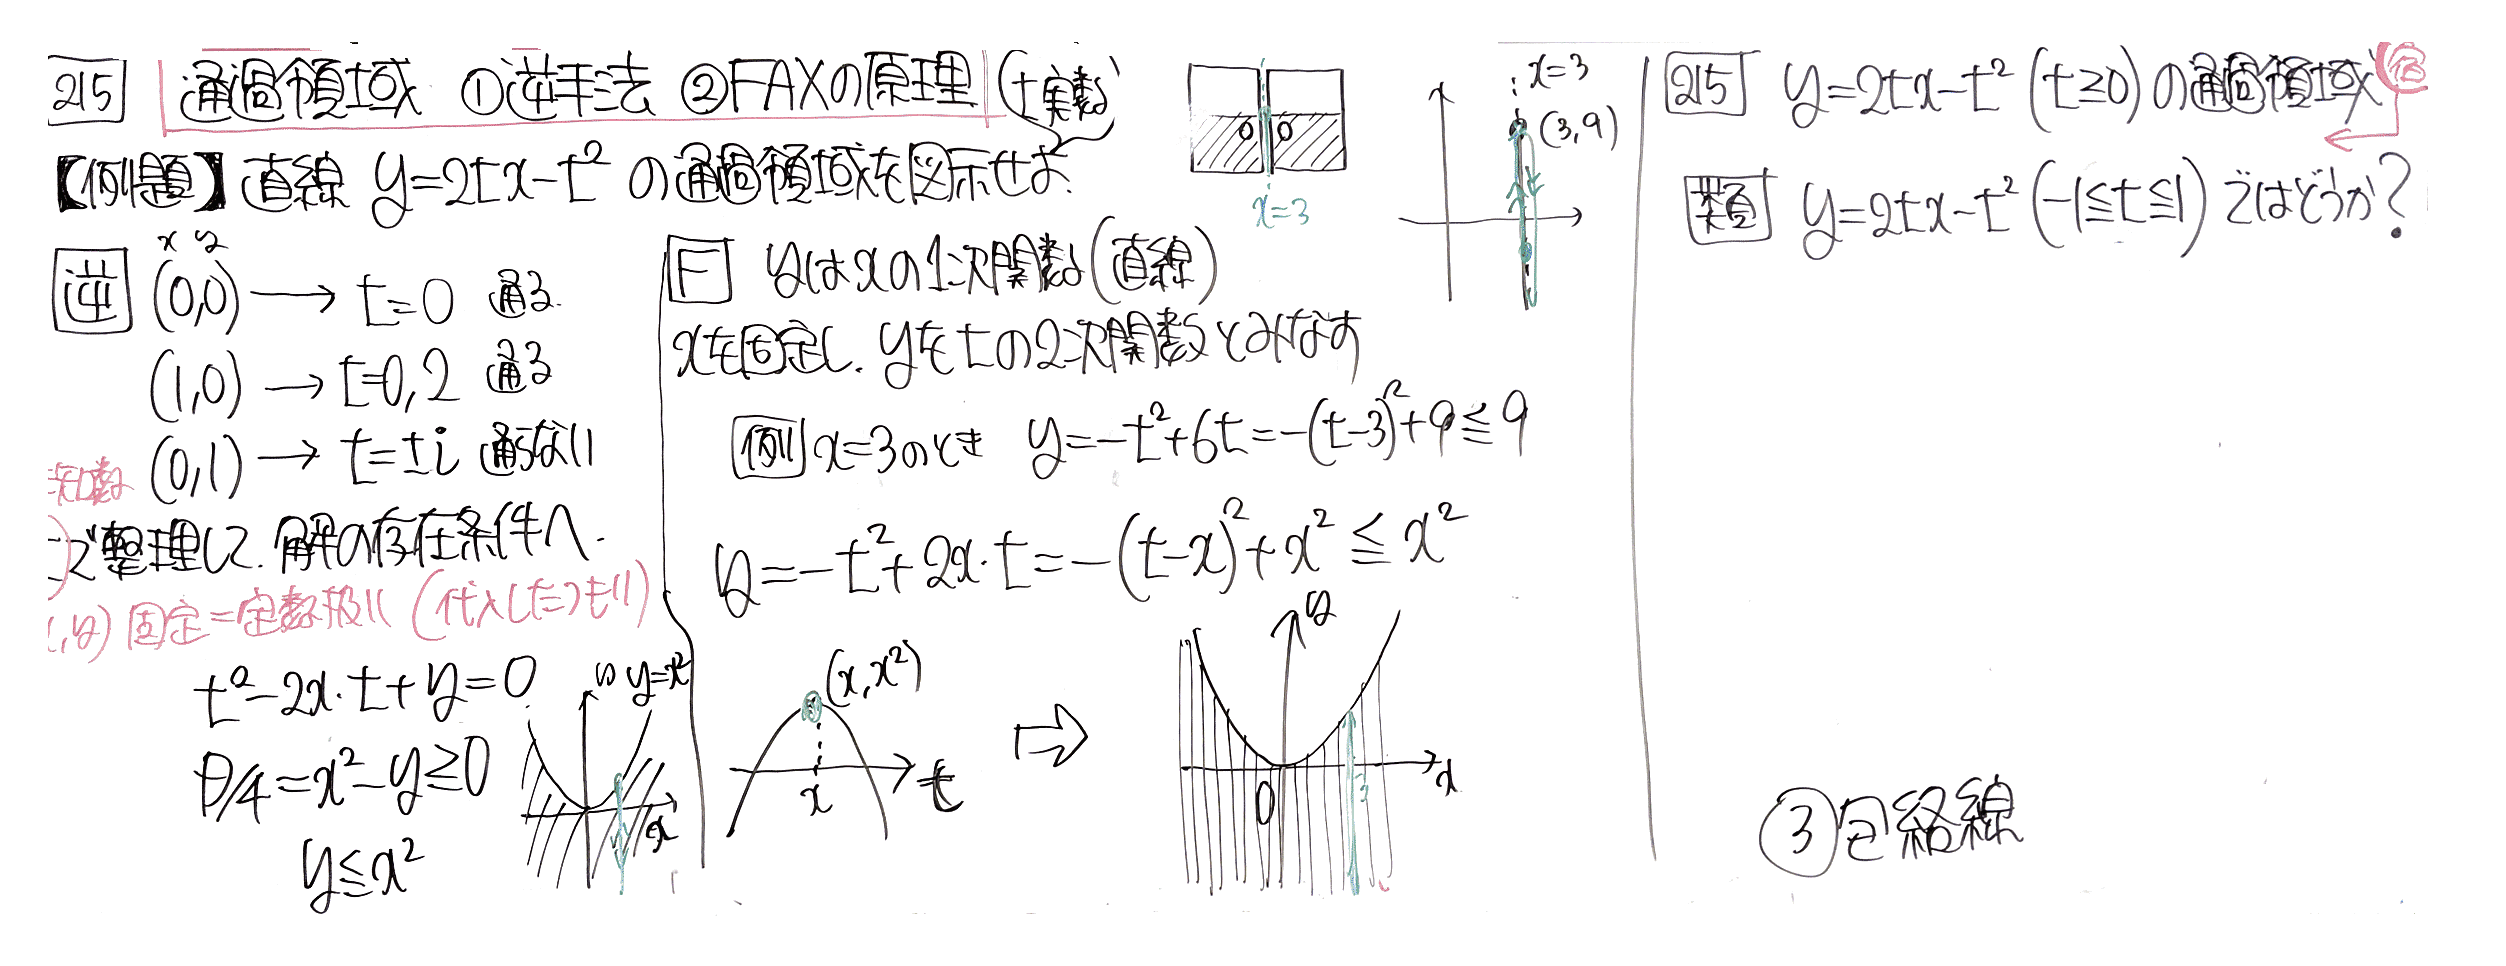 215 通過領域 ①逆手法 ②FAXの原理 (t実数)
【例題】直線 y=2tx-t² の通過領域を図示せよ.
逆
x y
(0,0) → t=0 通る.
(1,0) → t=0,2 通る
(0,1) → t=±i 通らない
で整理して.解の存在条件へ.
固定=定数扱い (代入したつもり)
t²-2x・t+y=0
D/4=x²-y≥0
y≦x²
y=x²
x
F yはxの1次関数(直線)
xを固定し. yをtの2次関数とみなす
例 x=3のとき y=-t²+6t=-(t-3)²+9≦9
y=-t²+2x・t=-(t-x)²+x²≦x²
(x,x²)
x
t
⇨
y
x
0
3
x=3
x=3
(3,9)
215 y=2tx-t² (t≥0)の通過領域
類題 y=2tx-t² (-1≦t≦1)ではどうか?
③包絡線